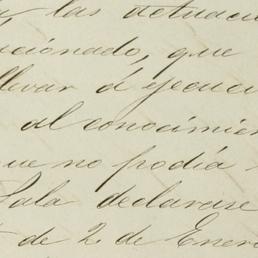 las actuaci
cionado, que
llevar á ejecuci
al conocimien
que no podía
Sala declarase
de 2 de Enero